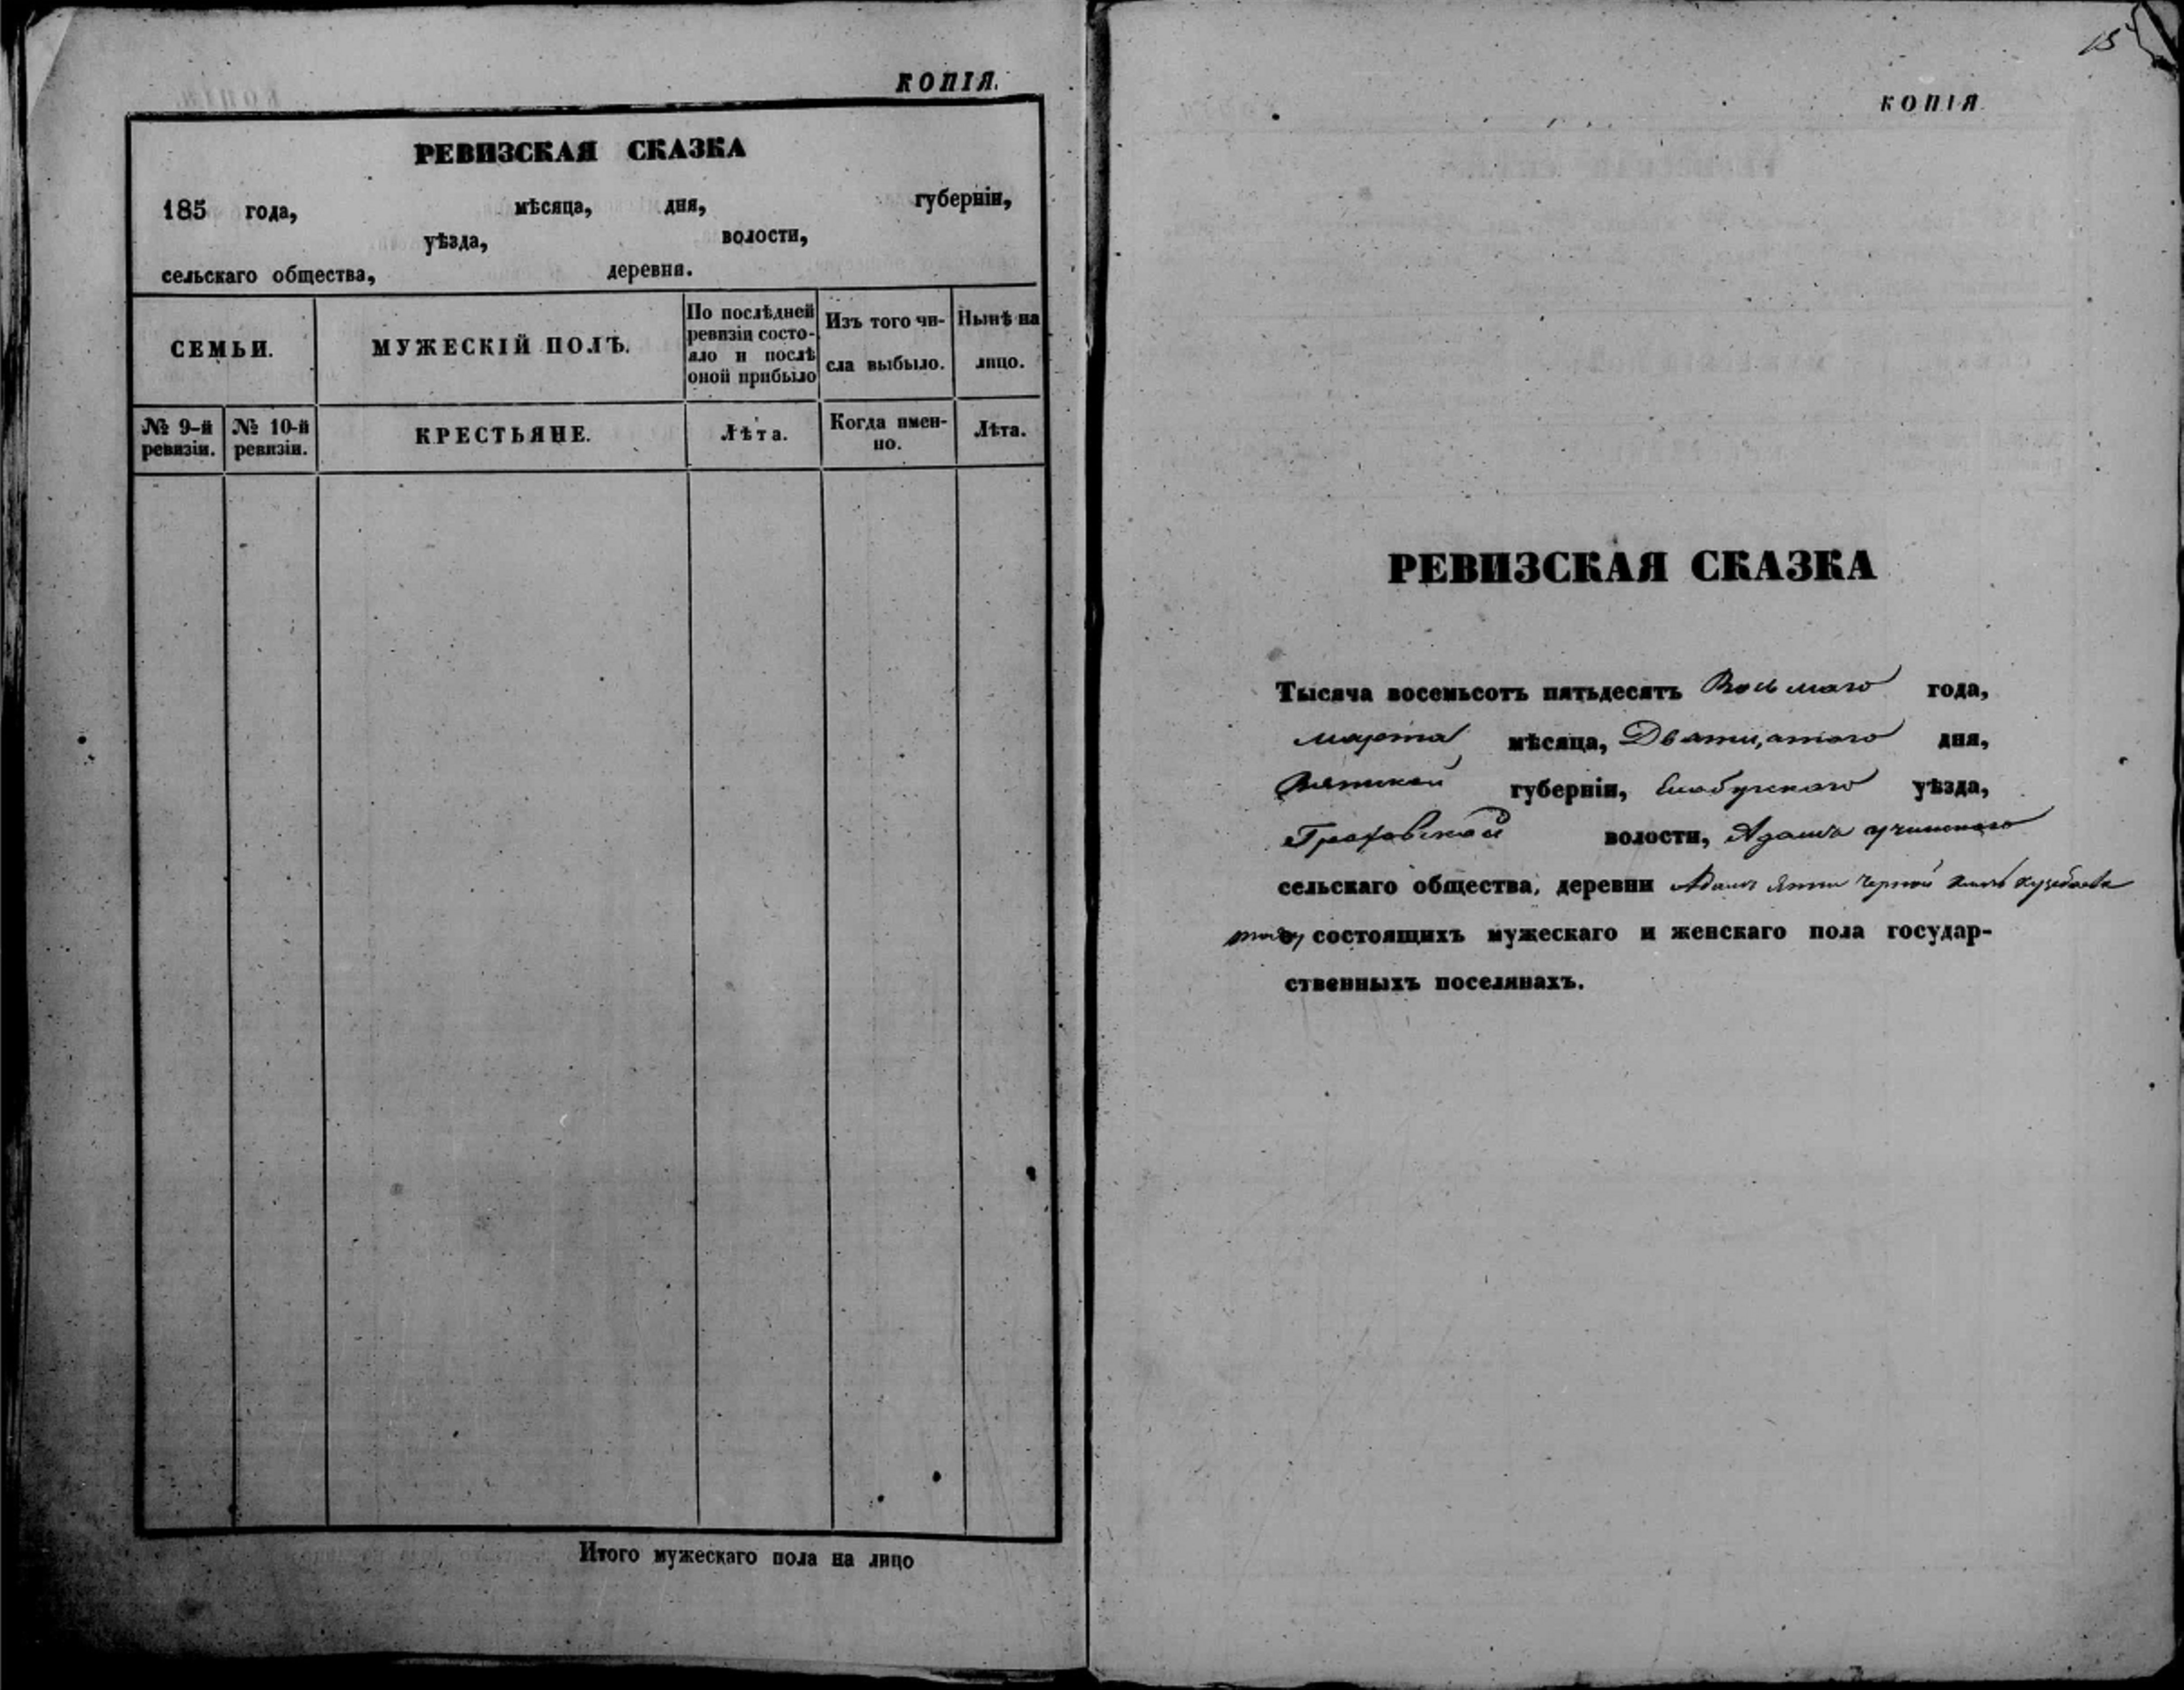 КОПІЯ.
РЕВИЗСКАЯ СКАЗКА
185 года, мѣсяца, дня, губерніи,
уѣзда, волости,
сельскаго общества, деревни.
СЕМЬИ.
МУЖЕСКІЙ ПОЛЪ.
По послѣдней
ревизіи состо-
яло и послѣ
оной прибыло
Изъ того чи-
сла выбыло.
Нынѣ на
лицо.
№ 9-й
ревизіи.
№ 10-й
ревизіи.
КРЕСТЬЯНЕ.
Лѣта.
Когда имен-
но.
Лѣта.
Итого мужескаго пола на лицо
15
КОПІЯ
РЕВИЗСКАЯ СКАЗКА
Тысяча восемьсотъ пятьдесятъ Восьмаго года,
марта мѣсяца, Дватцатаго дня,
Вятской губерніи, Елабужскаго уѣзда,
Граховской волости, Адамъ учинскаго
сельскаго общества, деревни Адамъ Ятчи Черной Ключь Кузебаева
о состоящихъ мужескаго и женскаго пола государ-
ственныхъ поселянахъ.